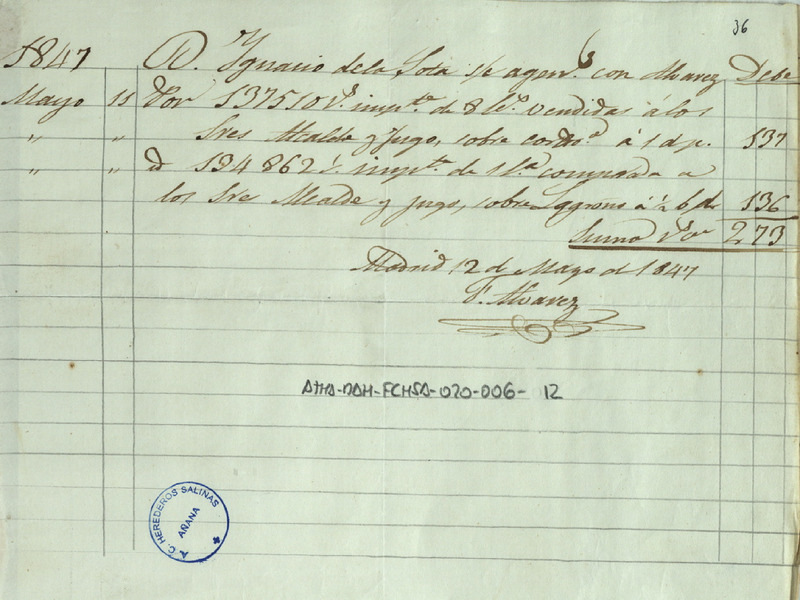 36
1847 D. Ygnacio de la Sota s/c agen.ª con Alvarez Debe
Mayo 11 Por 137510 r.s imp.te de 8 l.s vendidas á los
" " Sres Alcalde y Jugo, sobre á 1 d p. 137
" " id 134862 r. imp.te de 1 l.a comprada a
los Sre Alcalde y Jugo, sobre Logroño á ½ b d. 136
Suma r.s von 273
Madrid 12 de Mayo de 1847
F. Alvarez
ATHA-DAH-FCHSA-020-006- 12
A. C. HEREDEROS SALINAS
AÑANA